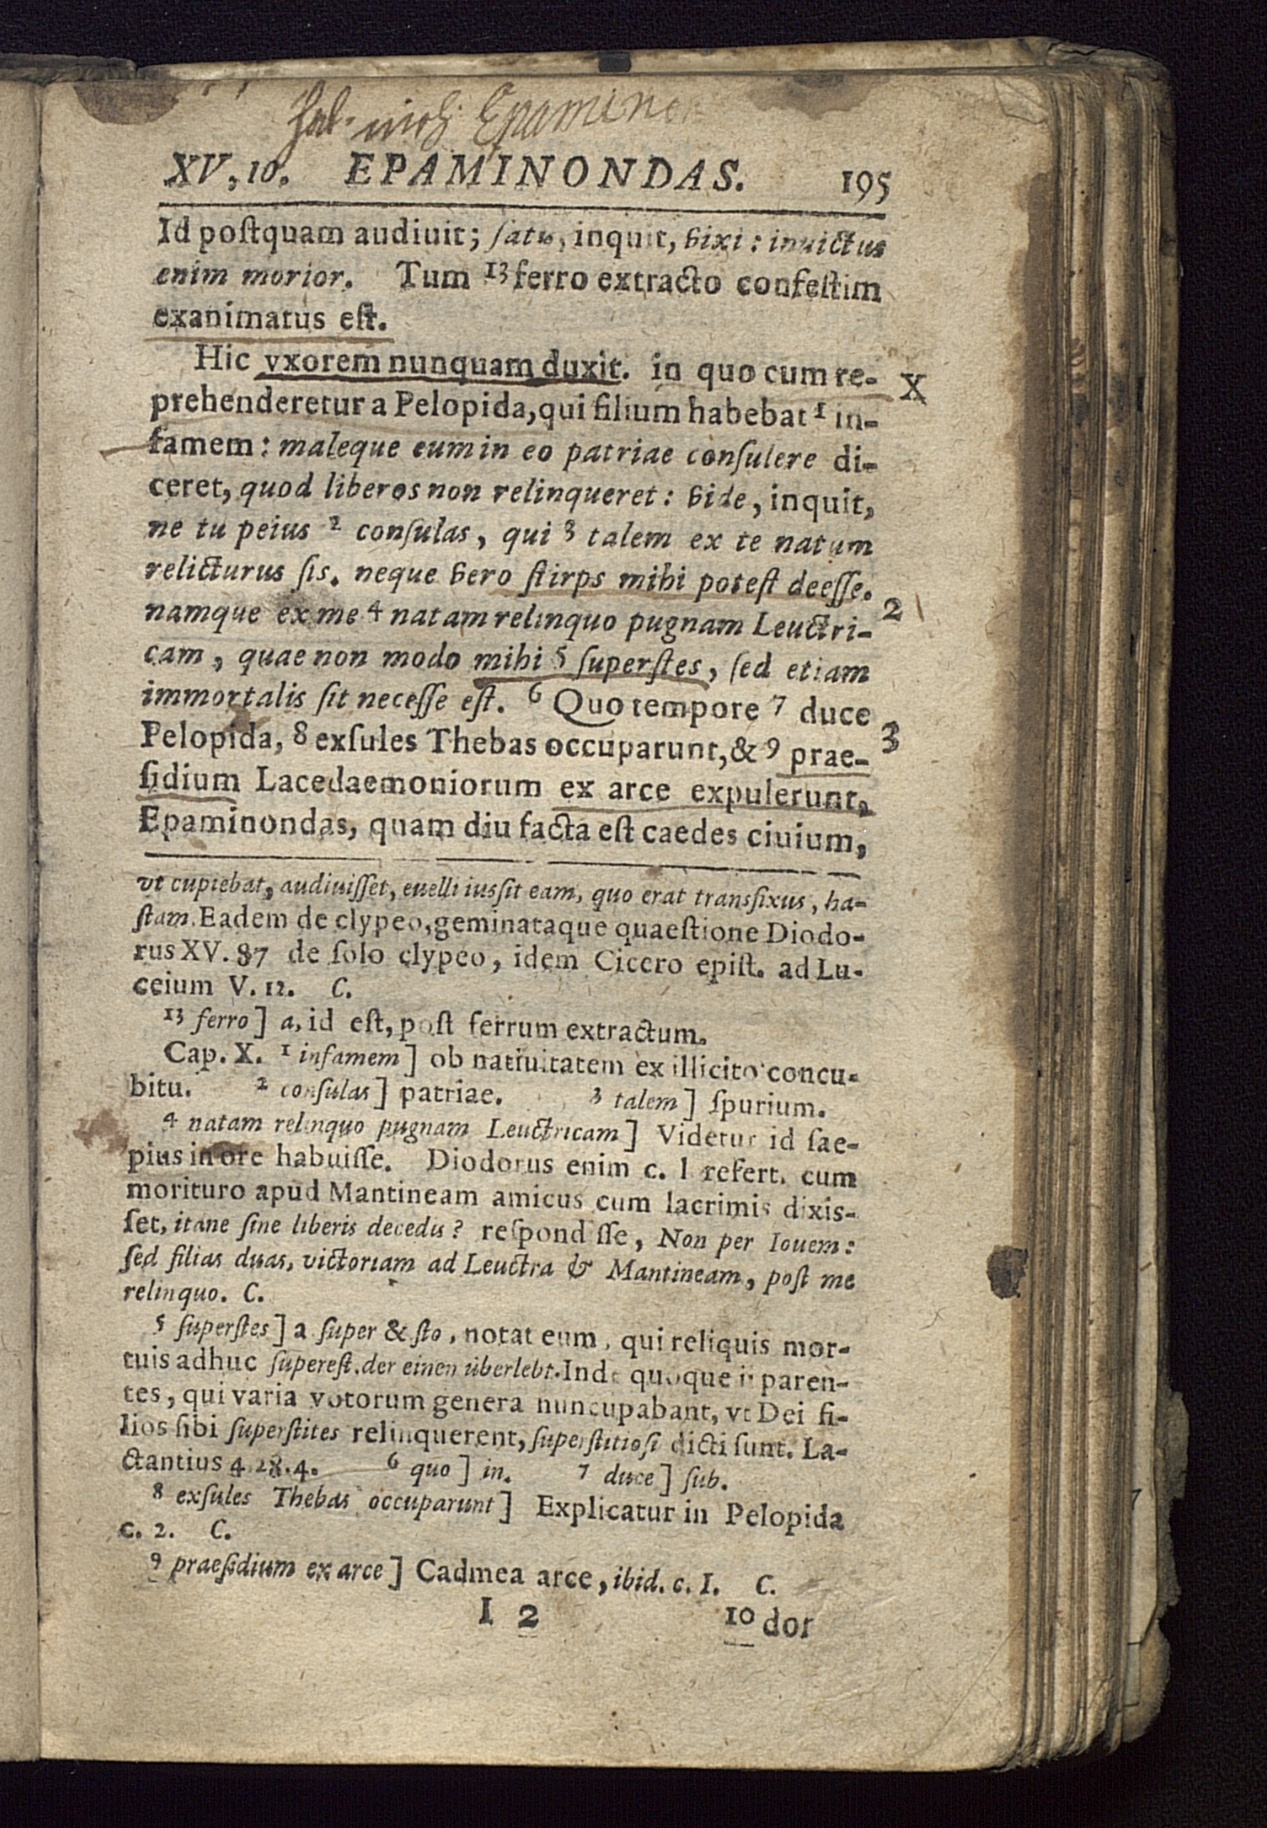 XV, 10. EPAMINONDAS. 195
Id poſtquam audiuit; ſatis, inquit, vixi: inuictus
enim morior. Tum 13 ferro extracto confeſtim
exanimatus eſt.
Hic vxorem nunquam duxit. in quo cum re- X
prehenderetur a Pelopida, qui filium habebat 1 in-
famem: maleque eum in eo patriae conſulere di-
ceret, quod liberos non relinqueret: vide, inquit,
ne tu peius 2 conſulas, qui 3 talem ex te natum
relicturus ſis. neque vero ſtirps mihi poteſt deeſſe.
namque ex me 4 natam relinquo pugnam Leuctri- 2
cam, quae non modo mihi 5 ſuperſtes, ſed etiam
immortalis ſit neceſſe eſt. 6 Quo tempore 7 duce
Pelopida, 8 exſules Thebas occuparunt, & 9 prae- 3
ſidium Lacedaemoniorum ex arce expulerunt,
Epaminondas, quam diu facta eſt caedes ciuium,
vt cupiebat, audiuiſſet, euelli iusſit eam, quo erat transfixus, ha-
ſtam. Eadem de clypeo, geminataque quaeſtione Diodo-
rus XV. 87 de ſolo clypeo, idem Cicero epiſt. ad Lu-
ceium V. 12. C.
13 ferro] a, id eſt, poſt ferrum extractum.
Cap. X. 1 infamem] ob natiuitatem ex illicito concu-
bitu. 2 conſulas] patriae. 3 talem] ſpurium.
4 natam relinquo pugnam Leuctricam] Videtur id ſae-
pius in ore habuiſſe. Diodorus enim c. l refert, cum
morituro apud Mantineam amicus cum lacrimis dixis-
ſet, itane ſine liberis decedis? reſpondiſſe, Non per Iouem:
ſed filias duas, victoriam ad Leuctra & Mantineam, poſt me
relinquo. C.
5 ſuperſtes] a ſuper & ſto, notat eum, qui reliquis mor-
tuis adhuc ſupereſt. der einen überlebt. Inde quoque ii paren-
tes, qui varia votorum genera nuncupabant, vt Dei fi-
lios ſibi ſuperſtites relinquerent, ſuperſtitioſi dicti ſunt. La-
ctantius 4. 28. 4. 6 quo] in. 7 duce] ſub.
8 exſules Thebas occuparunt] Explicatur in Pelopida
c. 2. C.
9 praeſidium ex arce] Cadmea arce, ibid. c. I. C.
I 2 10 dor